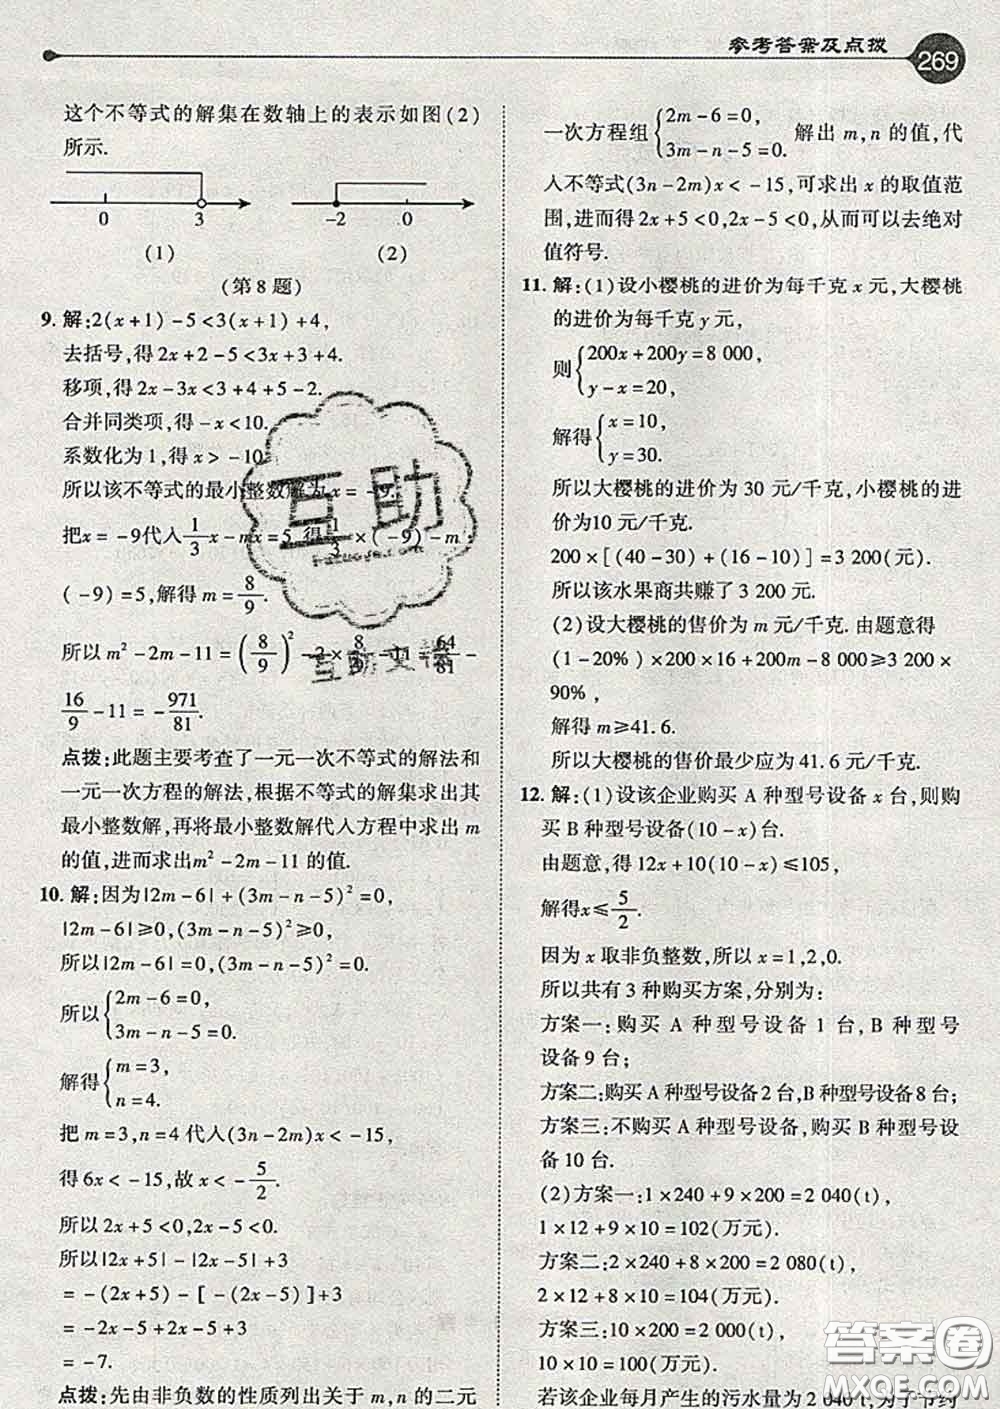 参考答案及点拨
269
这个不等式的解集在数轴上的表示如图(2)
所示.
0 3 -2 0
(1) (2)
(第8题)
9. 解:2(x+1)-5<3(x+1)+4,
去括号,得2x+2-5<3x+3+4.
移项,得2x-3x<3+4+5-2.
合并同类项,得-x<10.
系数化为1,得x>-10.
所以该不等式的最小整数解为x=-9.
把x=-9代入1/3x-mx=5,得1/3×(-9)-m·
(-9)=5,解得m=8/9.
所以m²-2m-11=(8/9)²-2×8/9-11=64/81-
16/9-11=-971/81.
点拨:此题主要考查了一元一次不等式的解法和
一元一次方程的解法,根据不等式的解集求出其
最小整数解,再将最小整数解代入方程中求出m
的值,进而求出m²-2m-11的值.
10. 解:因为|2m-6|+(3m-n-5)²=0,
|2m-6|≥0,(3m-n-5)²≥0,
所以|2m-6|=0,(3m-n-5)²=0.
所以{2m-6=0,
3m-n-5=0.
解得{m=3,
n=4.
把m=3,n=4代入(3n-2m)x<-15,
得6x<-15,故x<-5/2.
所以2x+5<0,2x-5<0,
所以|2x+5|-|2x-5|+3
=-(2x+5)-[-(2x-5)]+3
=-2x-5+2x-5+3
=-7.
点拨:先由非负数的性质列出关于m,n的二元
一次方程组{2m-6=0,
3m-n-5=0. 解出m,n的值,代
入不等式(3n-2m)x<-15,可求出x的取值范
围,进而得2x+5<0,2x-5<0,从而可以去绝对
值符号.
11. 解:(1)设小樱桃的进价为每千克x元,大樱桃
的进价为每千克y元,
则{200x+200y=8 000,
y-x=20,
解得{x=10,
y=30.
所以大樱桃的进价为30元/千克,小樱桃的进
价为10元/千克.
200×[(40-30)+(16-10)]=3 200(元).
所以该水果商共赚了3 200元.
(2)设大樱桃的售价为m元/千克.由题意得
(1-20%)×200×16+200m-8 000≥3 200×
90%,
解得m≥41.6.
所以大樱桃的售价最少应为41.6元/千克.
12. 解:(1)设该企业购买A种型号设备x台,则购
买B种型号设备(10-x)台.
由题意,得12x+10(10-x)≤105,
解得x≤5/2.
因为x取非负整数,所以x=1,2,0.
所以共有3种购买方案,分别为:
方案一:购买A种型号设备1台,B种型号
设备9台;
方案二:购买A种型号设备2台,B种型号设备8台;
方案三:不购买A种型号设备,购买B种型号设
备10台.
(2)方案一:1×240+9×200=2 040(t),
1×12+9×10=102(万元).
方案二:2×240+8×200=2 080(t),
2×12+8×10=104(万元).
方案三:10×200=2 000(t),
10×10=100(万元).
若该企业每月产生的污水量为2 040 t,为了节约
互助
互助文档
答案圈
MXQE.COM